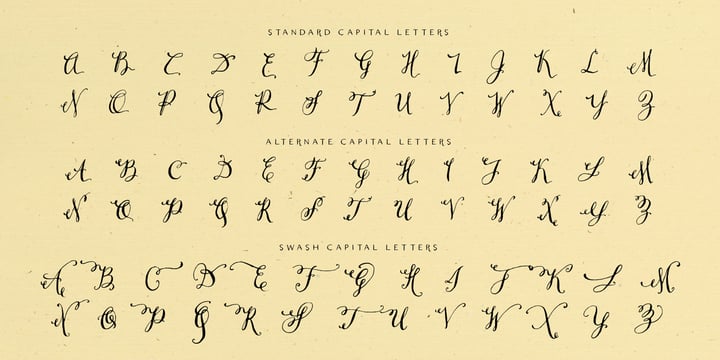 STANDARD CAPITAL LETTERS
A B C D E F G H I J K L M
N O P Q R S T U V W X Y Z
ALTERNATE CAPITAL LETTERS
A B C D E F G H I J K L M
N O P Q R S T U V W X Y Z
SWASH CAPITAL LETTERS
A B C D E F G H I J K L M
N O P Q R S T U V W X Y Z